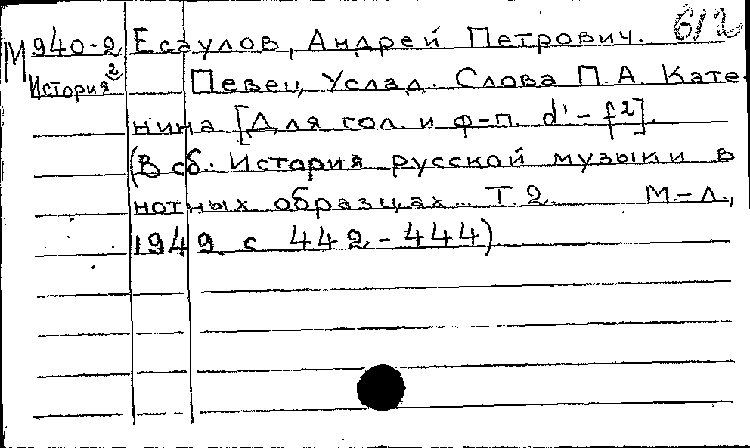 М 940-2 Есаулов, Андрей Петрович. 612
История 2 Певец Услад. Слова П.А. Кате-
нина [Для гол. и ф-п. d¹ - f²].
(В сб. История русской музыки в
нотных образцах. Т. 2 М-Л.,
1949 с 442-444)